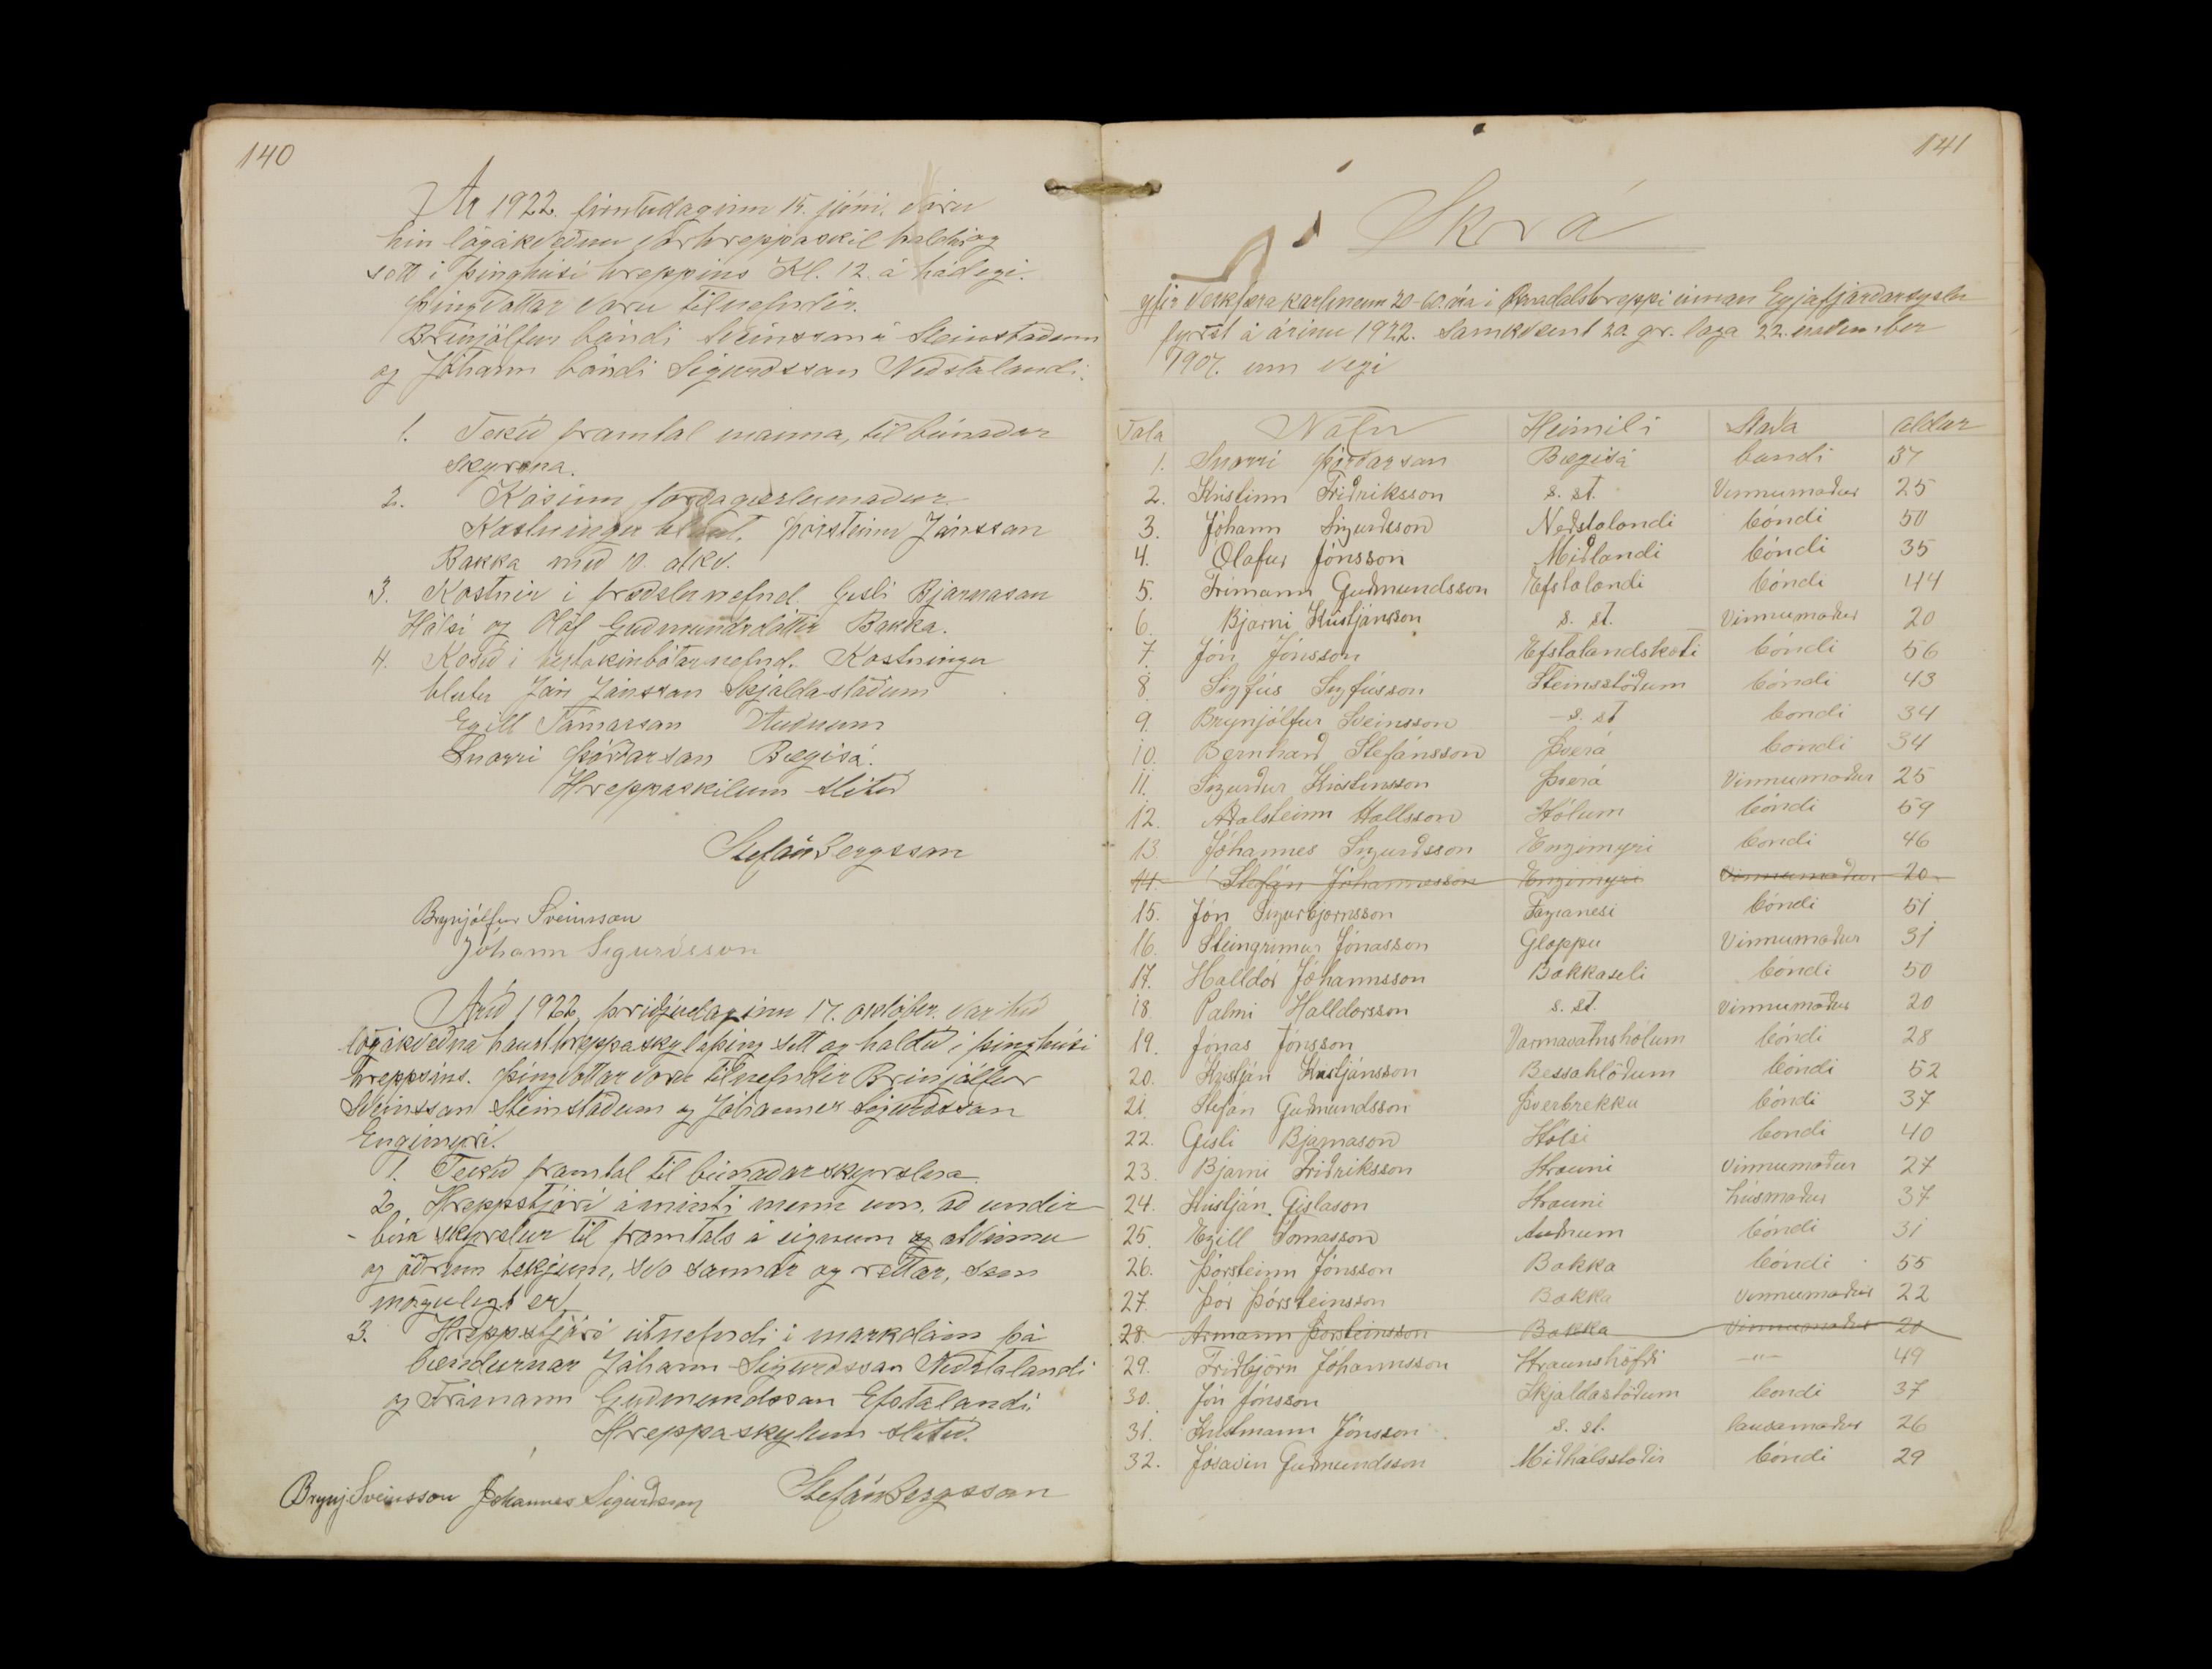 140
Ár 1922. fimtudaginn 15. júni, voru
hin lögákveðnu vorhreppaskil haldin og
sett i þinghúsi hreppins Kl. 12 á hádegi.
Þingvottar voru tilnefndir.
Brinjólfur bóndi Sveinsson á Steinstaðum
og Jóhann bóndi Sigurðsson Neðstalandi.
1. Tekið framtal manna, til búnaðar
skyrsna.
2. Kosinn forðagæslumaður
Kostningu hlaut, Þorsteinn Jónsson
Bakka með 10. atkv.
3. Kostnir i fræðslunefnd. Gisli Bjarnason
Hálsi og Ólöf Guðmundsdóttir Bakka.
4. Kosið i hestakinbótarnefnd. Kostningu
hlutu Jón Jónsson Skjaldastaðum
Egill Tómasson Auðnum
Snorri Þórðarson Bægisá.
Hreppaskilum slitið
Stefán Bergsson
Brynjólfur Sveinsson
Jóhann Sigurðsson
Árið 1922, þriðjudaginn 17. október. var hið
lögákveðna hausthreppaskylaþing sett og haldið i þinghúsi
hreppsins. Þingvottar voru tilnefndir Brinjólfur
Sveinsson Steinstaðum og Jóhannes Sigurðsson
Engimyri.
1. Tekið framtal til búnaðarskyrslna
2. Hreppstjóri áminti menn um, að undir-
- búa skyrslur til framtals á eignum og atvinnu
og öðrum tekjum, svo sannar og rettar, sem
mögulegt er.
3. Hreppstjóri útnefndi i markdóm þá
bændurnar Jóhann Sigurðsson Neðstalandi
og Frimann Guðmundsson Efstalandi.
Hreppaskylum slitið.
Brynj Sveinsson Jóhannes Sigurðsson Stefán Bergsson
141
Skrá
yfir verkfæra karlmenn 20-60 ára i Öxnadalshreppi innan Eyjafjarðarsyslu
fyrst á árinu 1922. samkvæmt 20. gr. laga 22. november
1907. um vegi
Tala Nöfn Heimili Staða aldur
1. Snorri Þórðarson Bægisá bondi 37
2. Kristinn Friðriksson s. st. Vinnumaður 25
3. Jóhann Sigurðsson Neðstalandi bóndi 50
4. Ólafur Jónsson Miðlandi bóndi 35
5. Frimann Guðmundsson Efstalandi bóndi 44
6. Bjarni Kristjánsson s. st. Vinnumaður 20
7. Jón Jónsson Efstalandskoti bóndi 56
8. Sigfús Sigfússon Steinsstöðum bóndi 43
9. Brynjólfur Sveinsson - s. st bondi 34
10. Bernharð Stefánsson Þverá bondi 34
11. Sigurður Kristinsson Þverá Vinnumaður 25
12. Aðalsteinn Hallsson Hólum bóndi 59
13 Jóhannes Sigurðsson Engimyri bondi 46
14. Stefán Jóhannesson Engimyri Vinnumaður 20
15. Jón Sigurbjornsson Fagranesi bóndi 51
16. Steingrimur Jónasson Gloppu Vinnumaður 31
17. Halldór Jóhannsson Bakkaseli bóndi 50
18 Palmi Halldorsson s. st. Vinnumaður 20
19. Jónas Jónsson Varmavatnsholum bóndi 28
20. Kristján Kristjánsson Bessahlöðum bóndi 52
21. Stefán Guðmundsson Þverbrekku bóndi 37
22. Gisli Bjarnason Hólsi bondi 40
23. Bjarni Friðriksson Hrauni Vinnumaður 27
24. Kristján Gislason Hrauni húsmaður 37
25. Egill Tomasson Auðnum bóndi 31
26. Þórsteinn Jónsson Bakka bóndi 55
27. Þór Þórsteinsson Bakka Vinnumaður 22
28. Armann Þorsteinsson Bakka Vinnumaður 20
29. Friðbjörn Jóhannsson Hraunshöfði -"- 49
30. Jón Jónsson Skjaldastöðum bondi 37
31. Hustmann Jónsson s. st. lausamaður 26
32. Jósavin Guðmundsson Miðhálsstöðir bóndi 29